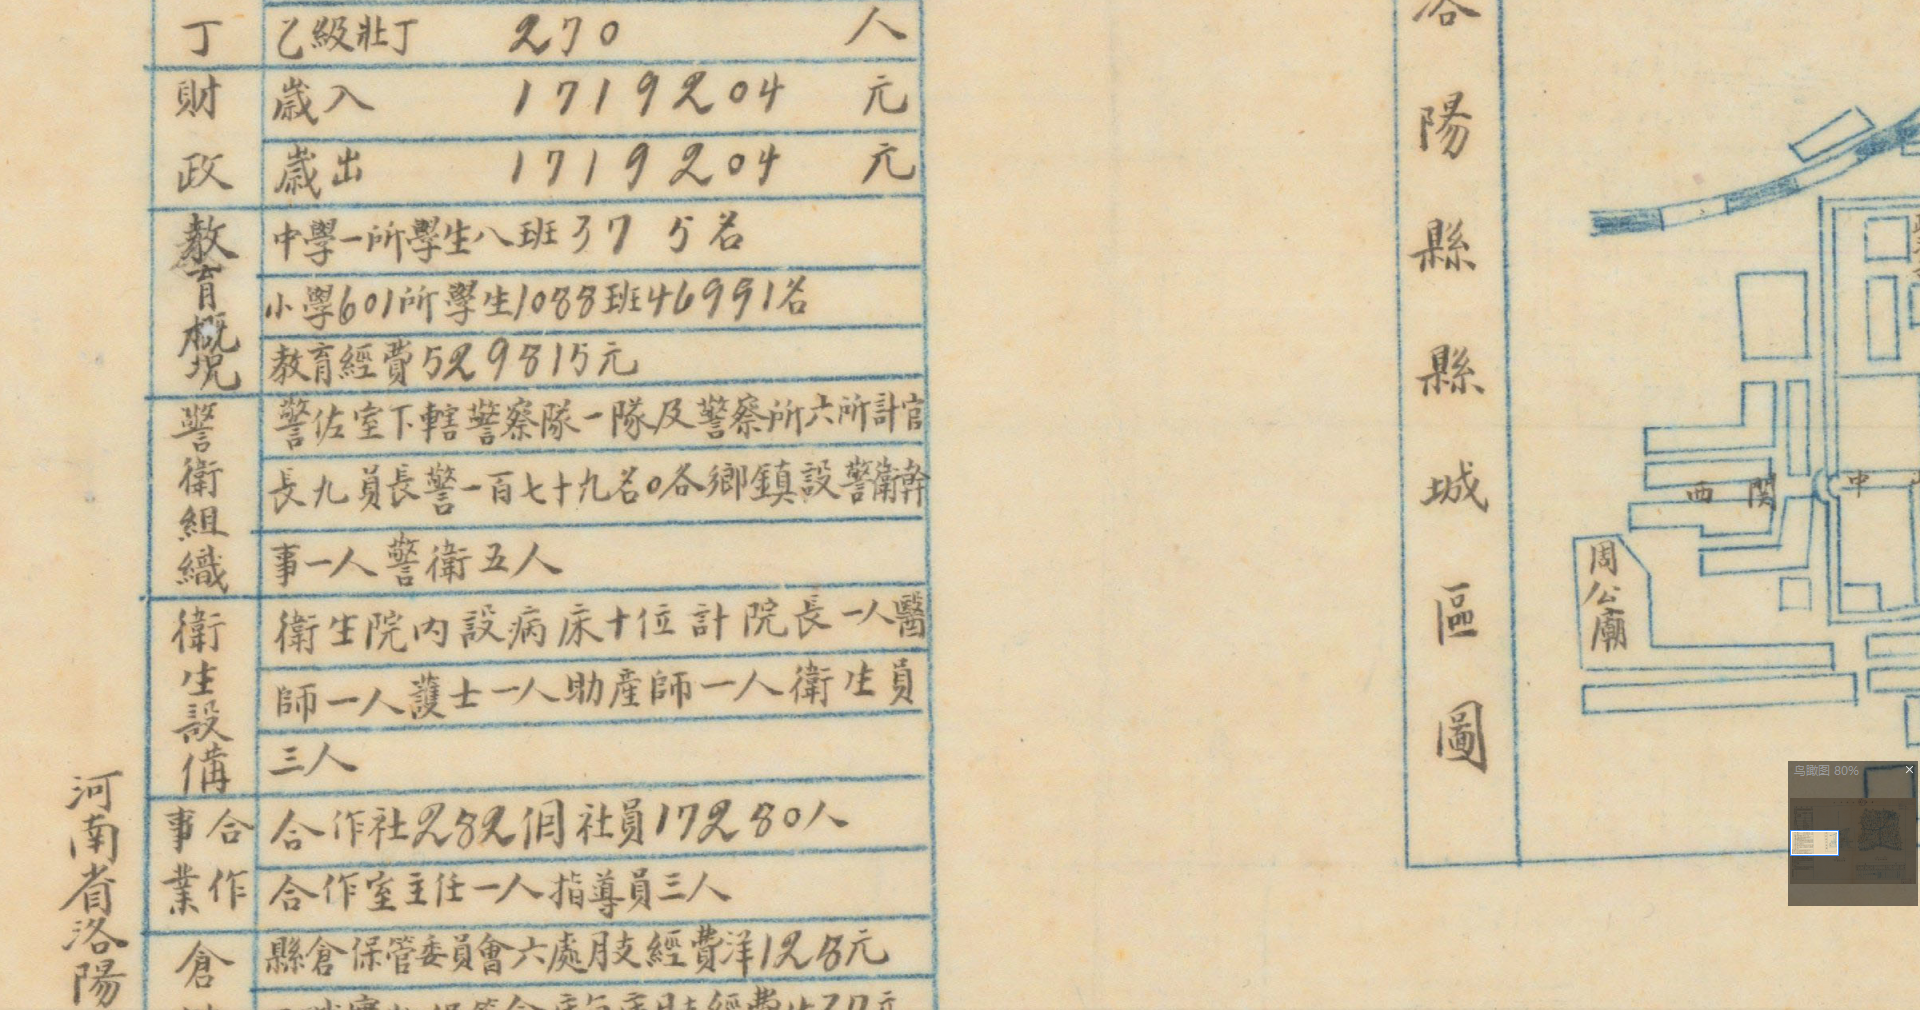 丁 乙級壯丁 270 人
財政 歲入 1719204 元
歲出 1719204 元
教育概況 中學一所學生八班375名
小學601所學生1088班46991名
教育經費529815元
警衛組織 警佐室下轄警察隊一隊及警察所六所計官
長九員長警一百七十九名。各鄉鎮設警衛幹
事一人警衛五人
衛生設備 衛生院內設病床十位計院長一人醫
師一人護士一人助產師一人衛生員
三人
合作事業 合作社282個社員17280人
合作室主任一人指導員三人
倉 縣倉保管委員會六處月支經費洋128元
河南省洛陽
洛陽縣縣城區圖
西關
中
周公廟
鸟瞰图 80%